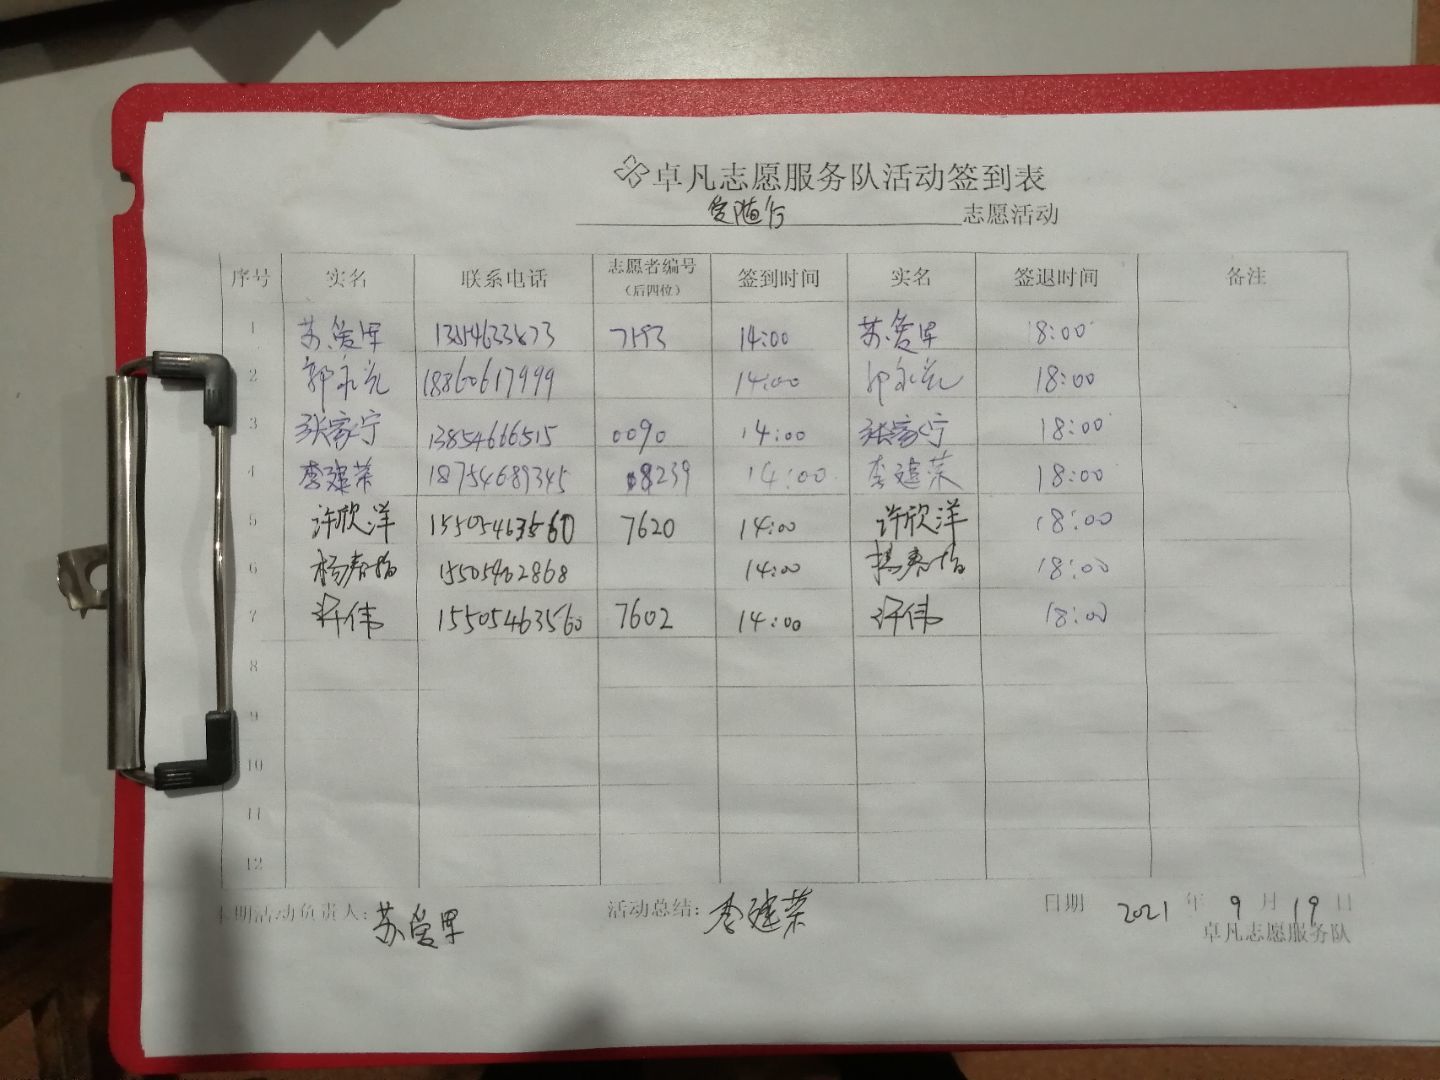 卓凡志愿服务队活动签到表
爱随行 志愿活动
序号 实名 联系电话 志愿者编号（后四位） 签到时间 实名 签退时间 备注
1 苏爱军 7193 14:00 苏爱军 18:00
2 郭永光 18860617999 14:00 18:00
3 张家宁 13854666515 0090 14:00 张家宁 18:00
4 李建荣 18754689345 8239 14:00 李建荣 18:00
5 许欣洋 15505463560 7620 14:00 许欣洋 18:00
6 杨春梅 15505462868 14:00 杨春梅 18:00
7 许伟 15505463560 7602 14:00 许伟 18:00
8
9
10
11
12
本期活动负责人：苏爱军 活动总结：李建荣 日期 2021 年 9 月 19 日
卓凡志愿服务队